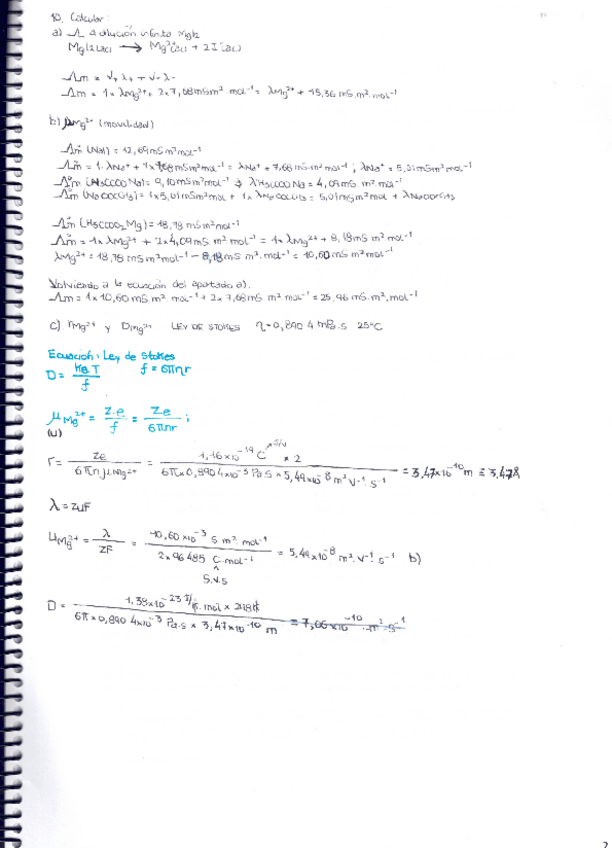 10. Calcular:
a) Λ a dilución infinita MgI2
MgI2(ac) → Mg2+(ac) + 2I-(ac)
Λm = ν+ λ+ + ν- λ-
Λm = 1x λMg2+ + 2x7,68 mS m2·mol-1 = λMg2+ + 15,36 mS·m2·mol-1
b) μMg2+ (movilidad)
Λm° (NaI) = 12,69 mS m2 mol-1
Λm° = 1·λNa+ + 1x 7,68 mS m2 mol-1 = λNa+ + 7,68 mS·m2·mol-1 ; λNa+ = 5,01 mS m2·mol-1
Λm° (H3CCOO Na) = 9,10 mS m2 mol-1 → λH3CCOO = 4,09 mS m2·mol-1
Λm° = 1x5,01 mS m2 mol + 1x = 5,01 mS m2 mol +
Λm° (H3CCOO2 Mg) = 18,78 mS m2 mol-1
Λm° = 1x λMg2+ + 2x4,09 mS m2 mol-1 = 1x λMg2+ + 8,18 mS m2 mol-1
λMg2+ = 18,78 mS m2 mol-1 - 8,18 mS m2·mol-1 = 10,60 mS m2 mol-1
Volviendo a la ecuación del apartado a).
Λm = 1x10,60 mS·m2 mol-1 + 2x 7,68 mS m2 mol-1 = 25,96 mS·m2·mol-1
c) rMg2+ y DMg2+ LEY DE STOKES η=0,890 4 mPa·s 25°C
Ecuación: Ley de Stokes
D = KB T / f f = 6πηr
μMg2+ = z·e / f = z·e / 6πηr ;
(u)
r = ze / 6πη μMg2+ = 1,16x10-19 C x 2 / 6π x 0,890 4x10-3 Pa·s x 5,49x10-8 m2 V-1·s-1 = 3,47x10-10 m = 3,47Å
λ = zuF
μMg2+ = λ / zF = 10,60x10-3 S m2·mol-1 / 2x96485 C mol-1 = 5,49x10-8 m2·V-1·s-1 b)
S.V.s
D = 1,38x10-23 x / 6π x 0,890 4x10-3 Pa·s x 3,47x10-10 m = 7,06x10-10 m2·s-1
2